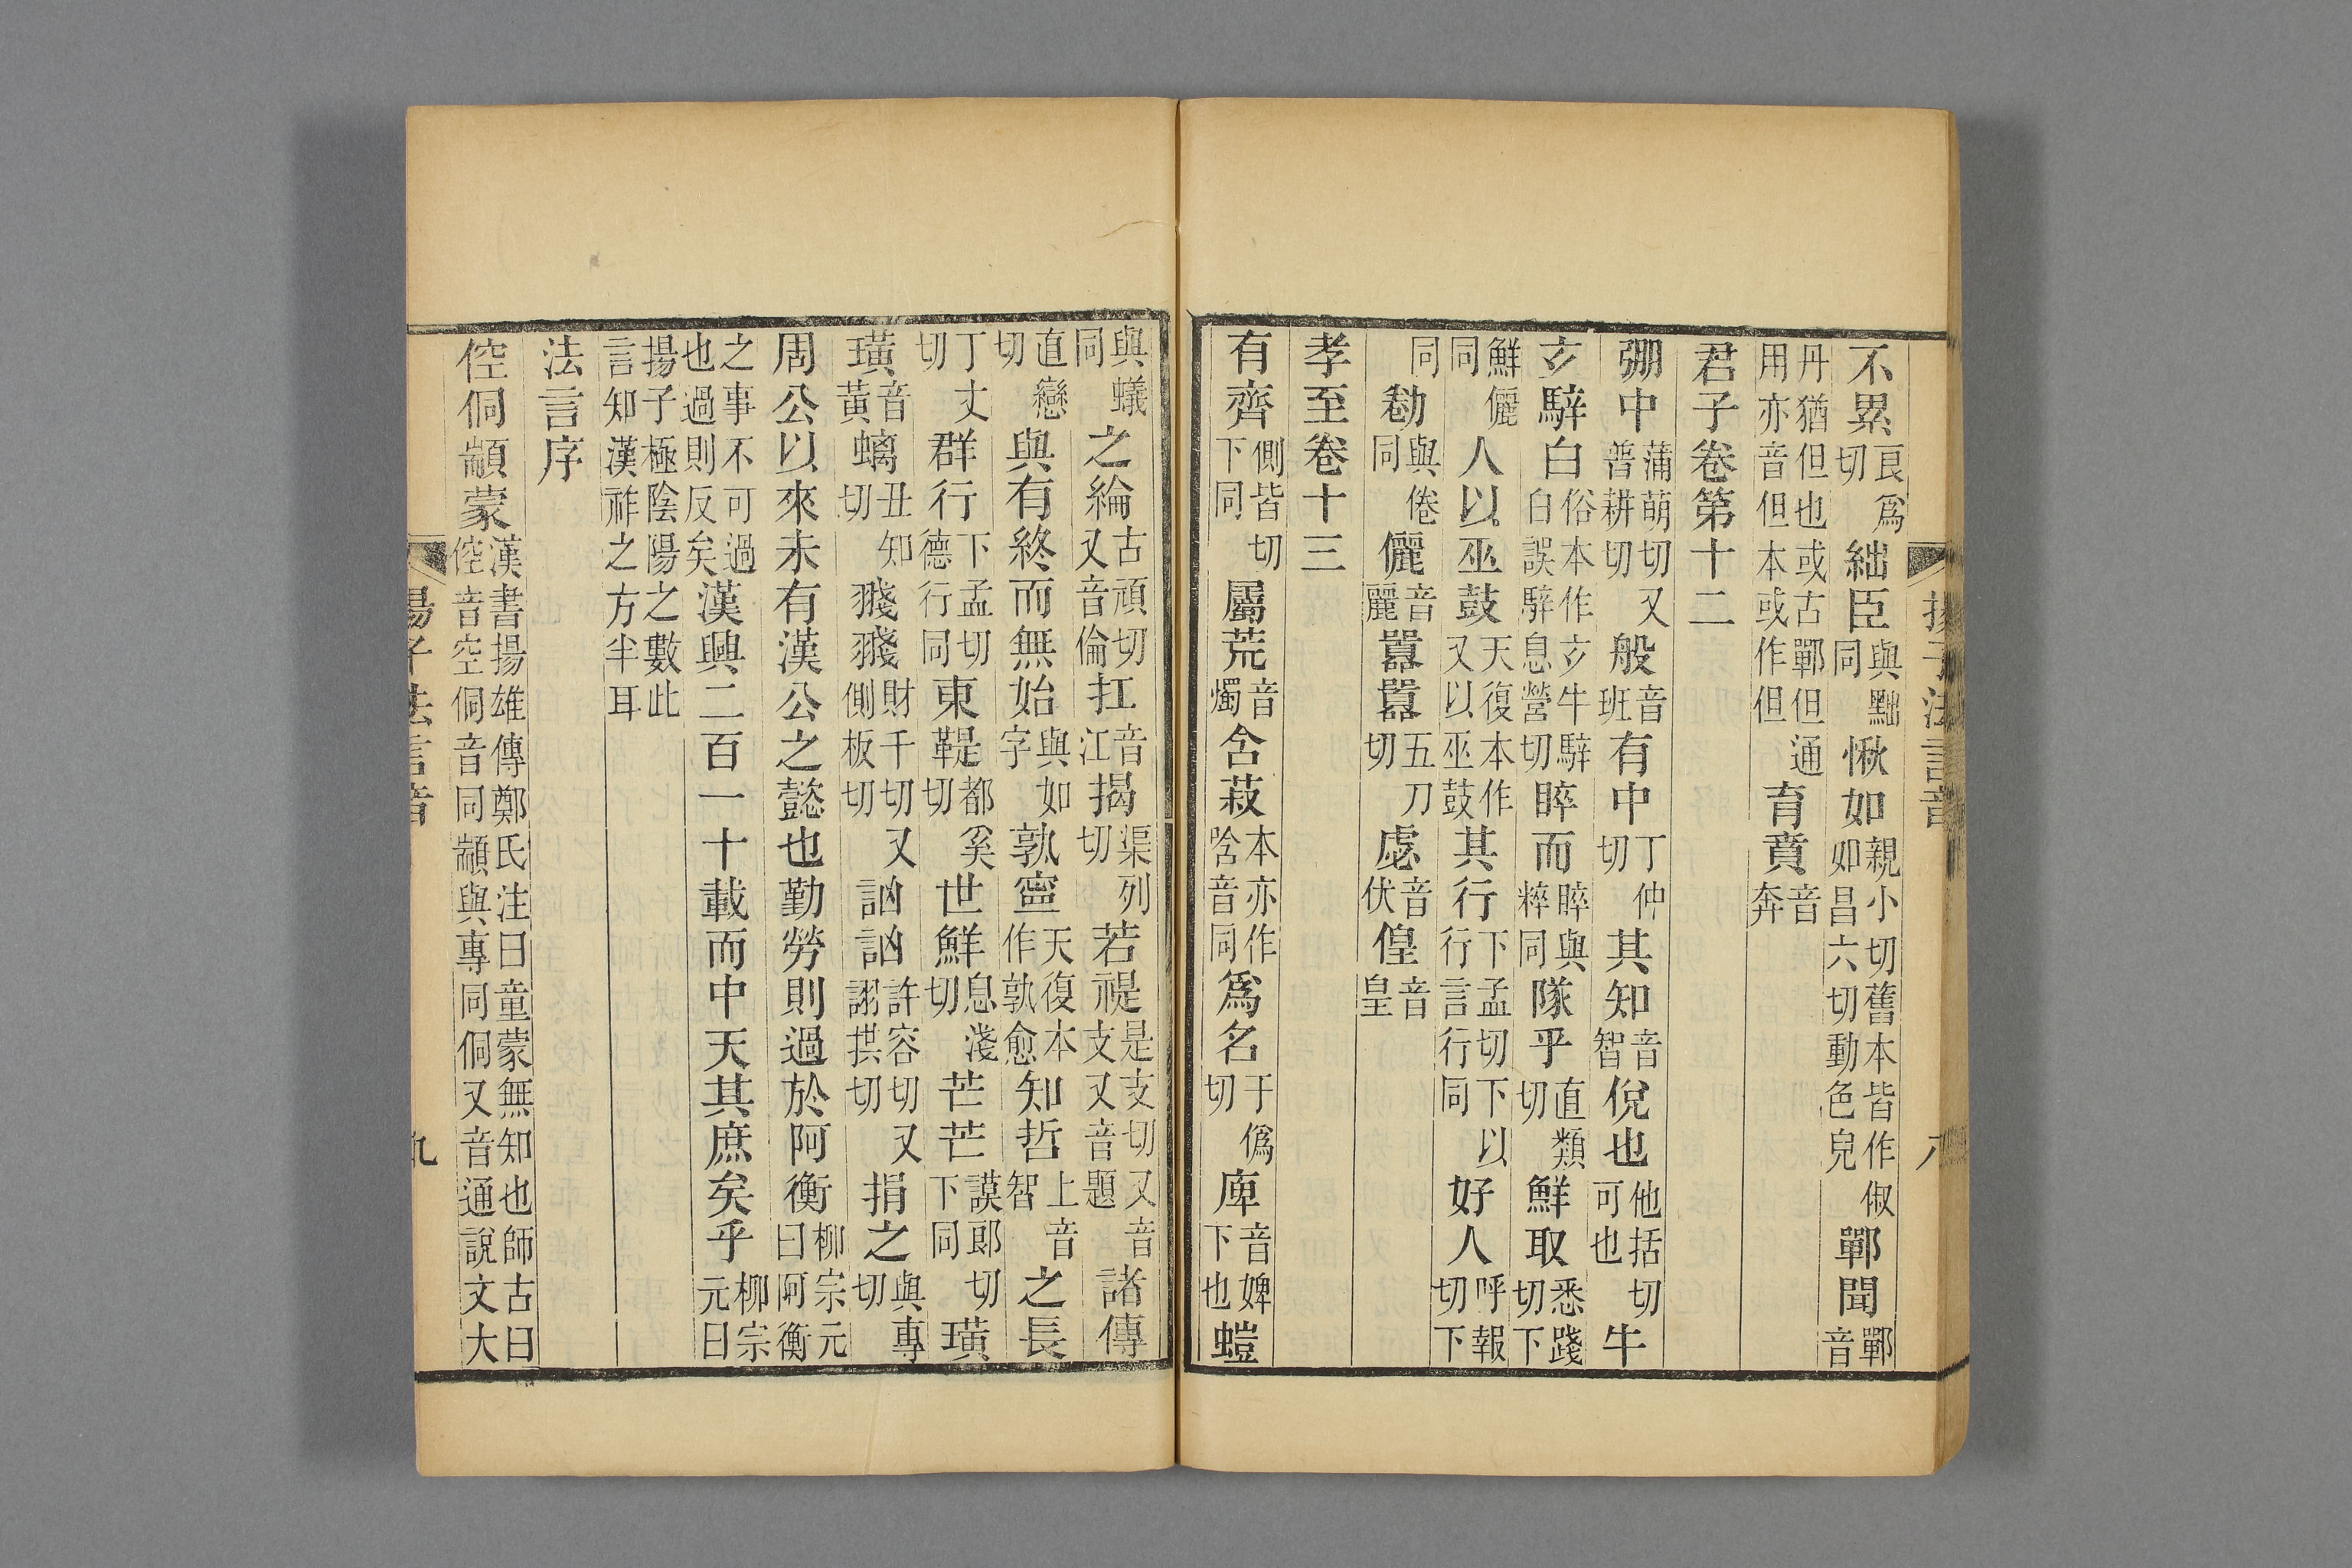 揚子法言音 八
不累良爲切絀臣與黜同愀如親小切舊本皆作俶如昌六切動色皃鄲聞鄲音
丹猶但也或古鄲但通用亦音但本或作但育賁音奔
君子卷第十二
弸中蒲萌切又普耕切般音班有中丁仲切其知音智侻也他括切可也牛
玄騂白俗本作玄牛騂白誤騂息營切睟而睟與粹同隊乎直類切鮮取悉踐切下
鮮儷同人以巫鼓天復本作又以巫鼓其行下孟切下以行言行同好人呼報切下
同勌與倦同儷音麗囂囂五刀切處音伏偟音皇
孝至卷十三
有齊側皆切下同屬荒音燭含菽本亦作唅音同爲名于僞切庳音婢下也螘
與蟻同之綸古頑切又音倫扛音江揭渠列切若禔是支切又音支又音題諸傳
直戀切與有終而無始與如字孰寧天復本作孰愈知哲上音智之長
丁丈切群行下孟切德行同東鞮都奚切世鮮息淺切芒芒謨郎切下同璜
璜音黃螭丑知切㦮㦮財千切又側板切訩訩許容切又詡拱切捐之與專切
周公以來未有漢公之懿也勤勞則過於阿衡柳宗元曰阿衡
之事不可過也過則反矣漢興二百一十載而中天其庶矣乎柳宗元曰
揚子極陰陽之數此言知漢祚之方半耳
法言序
倥侗顓蒙漢書揚雄傳鄭氏注曰童蒙無知也師古曰倥音空侗音同顓與專同侗又音通說文大
揚子法言音 九